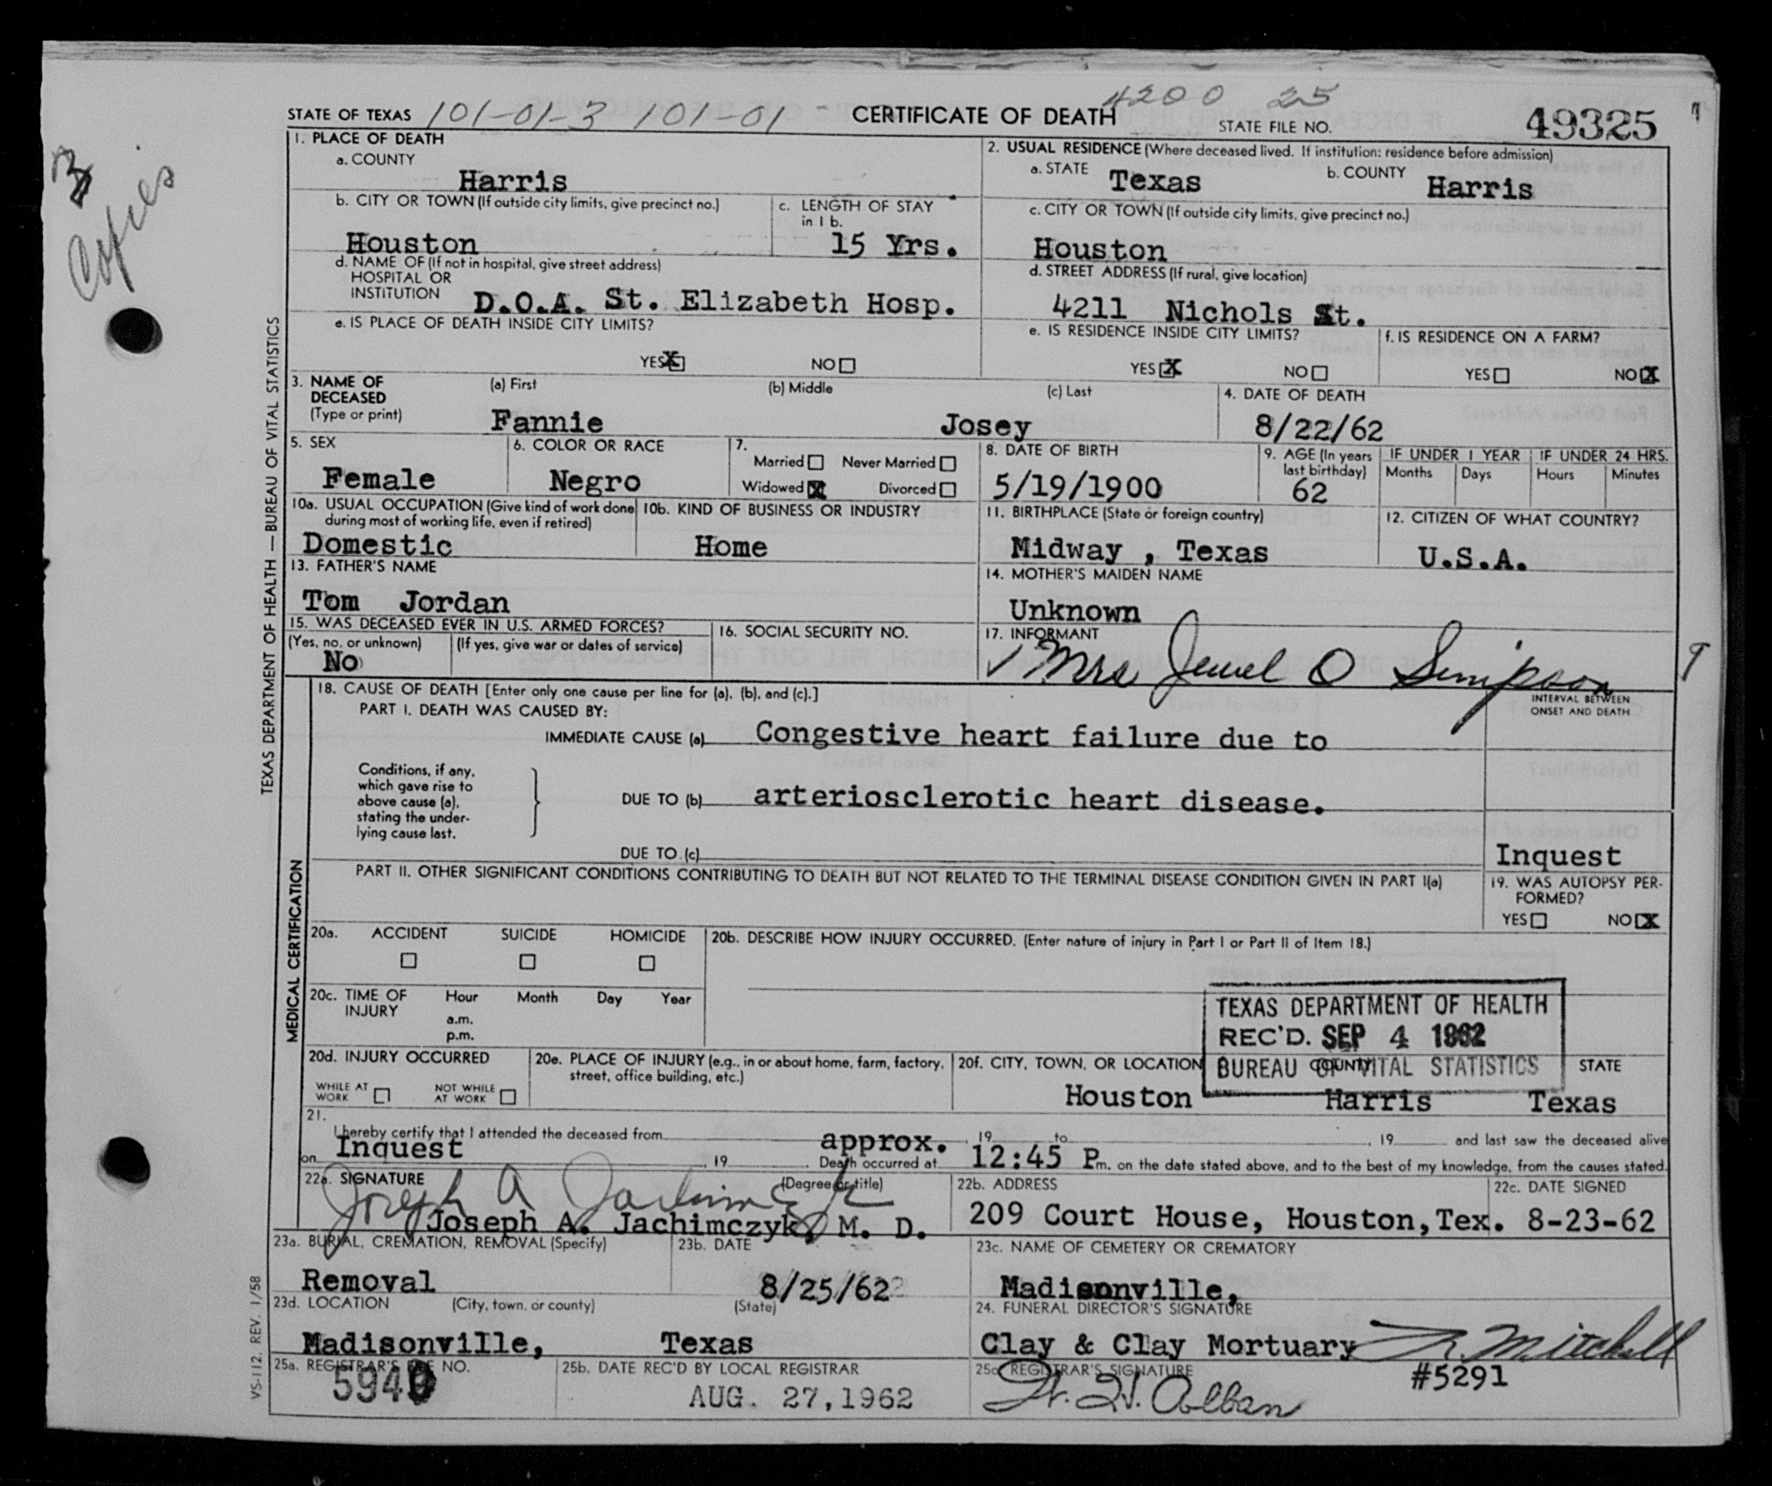 STATE OF TEXAS 101-01-3 101-01 CERTIFICATE OF DEATH 4200 25 STATE FILE NO. 49325
3 Copies
TEXAS DEPARTMENT OF HEALTH — BUREAU OF VITAL STATISTICS
1. PLACE OF DEATH
a. COUNTY
Harris
b. CITY OR TOWN (If outside city limits, give precinct no.)
Houston
c. LENGTH OF STAY in 1 b.
15 Yrs.
d. NAME OF (If not in hospital, give street address)
HOSPITAL OR
INSTITUTION D.O.A. St. Elizabeth Hosp.
e. IS PLACE OF DEATH INSIDE CITY LIMITS?
YES X NO
2. USUAL RESIDENCE (Where deceased lived. If institution: residence before admission)
a. STATE Texas b. COUNTY Harris
c. CITY OR TOWN (If outside city limits, give precinct no.)
Houston
d. STREET ADDRESS (If rural, give location)
4211 Nichols St.
e. IS RESIDENCE INSIDE CITY LIMITS?
YES X NO
f. IS RESIDENCE ON A FARM?
YES NO X
3. NAME OF DECEASED (Type or print)
(a) First (b) Middle (c) Last
Fannie Josey
4. DATE OF DEATH
8/22/62
5. SEX
Female
6. COLOR OR RACE
Negro
7.
Married Never Married
Widowed X Divorced
8. DATE OF BIRTH
5/19/1900
9. AGE (In years last birthday)
62
IF UNDER 1 YEAR IF UNDER 24 HRS.
Months Days Hours Minutes
10a. USUAL OCCUPATION (Give kind of work done during most of working life, even if retired)
Domestic
10b. KIND OF BUSINESS OR INDUSTRY
Home
11. BIRTHPLACE (State or foreign country)
Midway , Texas
12. CITIZEN OF WHAT COUNTRY?
U.S.A.
13. FATHER'S NAME
Tom Jordan
14. MOTHER'S MAIDEN NAME
Unknown
15. WAS DECEASED EVER IN U.S. ARMED FORCES?
(Yes, no, or unknown) (If yes, give war or dates of service)
No
16. SOCIAL SECURITY NO.
17. INFORMANT
Mrs Jewel O Simpson
MEDICAL CERTIFICATION
18. CAUSE OF DEATH [Enter only one cause per line for (a), (b), and (c).]
PART I. DEATH WAS CAUSED BY:
INTERVAL BETWEEN
ONSET AND DEATH
IMMEDIATE CAUSE (a) Congestive heart failure due to
Conditions, if any,
which gave rise to
above cause (a),
stating the under-
lying cause last.
DUE TO (b) arteriosclerotic heart disease.
DUE TO (c)
Inquest
PART II. OTHER SIGNIFICANT CONDITIONS CONTRIBUTING TO DEATH BUT NOT RELATED TO THE TERMINAL DISEASE CONDITION GIVEN IN PART I(a)
19. WAS AUTOPSY PER-
FORMED?
YES NO X
20a. ACCIDENT SUICIDE HOMICIDE
20b. DESCRIBE HOW INJURY OCCURRED. (Enter nature of injury in Part I or Part II of Item 18.)
20c. TIME OF INJURY
Hour Month Day Year
a.m.
p.m.
TEXAS DEPARTMENT OF HEALTH
REC'D. SEP 4 1962
BUREAU OF VITAL STATISTICS
20d. INJURY OCCURRED
WHILE AT WORK NOT WHILE AT WORK
20e. PLACE OF INJURY (e.g., in or about home, farm, factory, street, office building, etc.)
20f. CITY, TOWN, OR LOCATION COUNTY STATE
Houston Harris Texas
21.
I hereby certify that I attended the deceased from approx. , 19 to , 19 and last saw the deceased alive
on Inquest , 19 . Death occurred at 12:45 P m. on the date stated above, and to the best of my knowledge, from the causes stated.
22a. SIGNATURE (Degree or title)
Joseph A Jachimczyk
Joseph A. Jachimczyk, M. D.
22b. ADDRESS
209 Court House, Houston, Tex.
22c. DATE SIGNED
8-23-62
23a. BURIAL, CREMATION, REMOVAL (Specify)
Removal
23b. DATE
8/25/62
23c. NAME OF CEMETERY OR CREMATORY
Madisonville,
23d. LOCATION (City, town, or county) (State)
Madisonville, Texas
24. FUNERAL DIRECTOR'S SIGNATURE
Clay & Clay Mortuary Mitchell
#5291
25a. REGISTRAR'S FILE NO.
25b. DATE REC'D BY LOCAL REGISTRAR
AUG. 27, 1962
25c. REGISTRAR'S SIGNATURE
VS-112. REV. 1/58